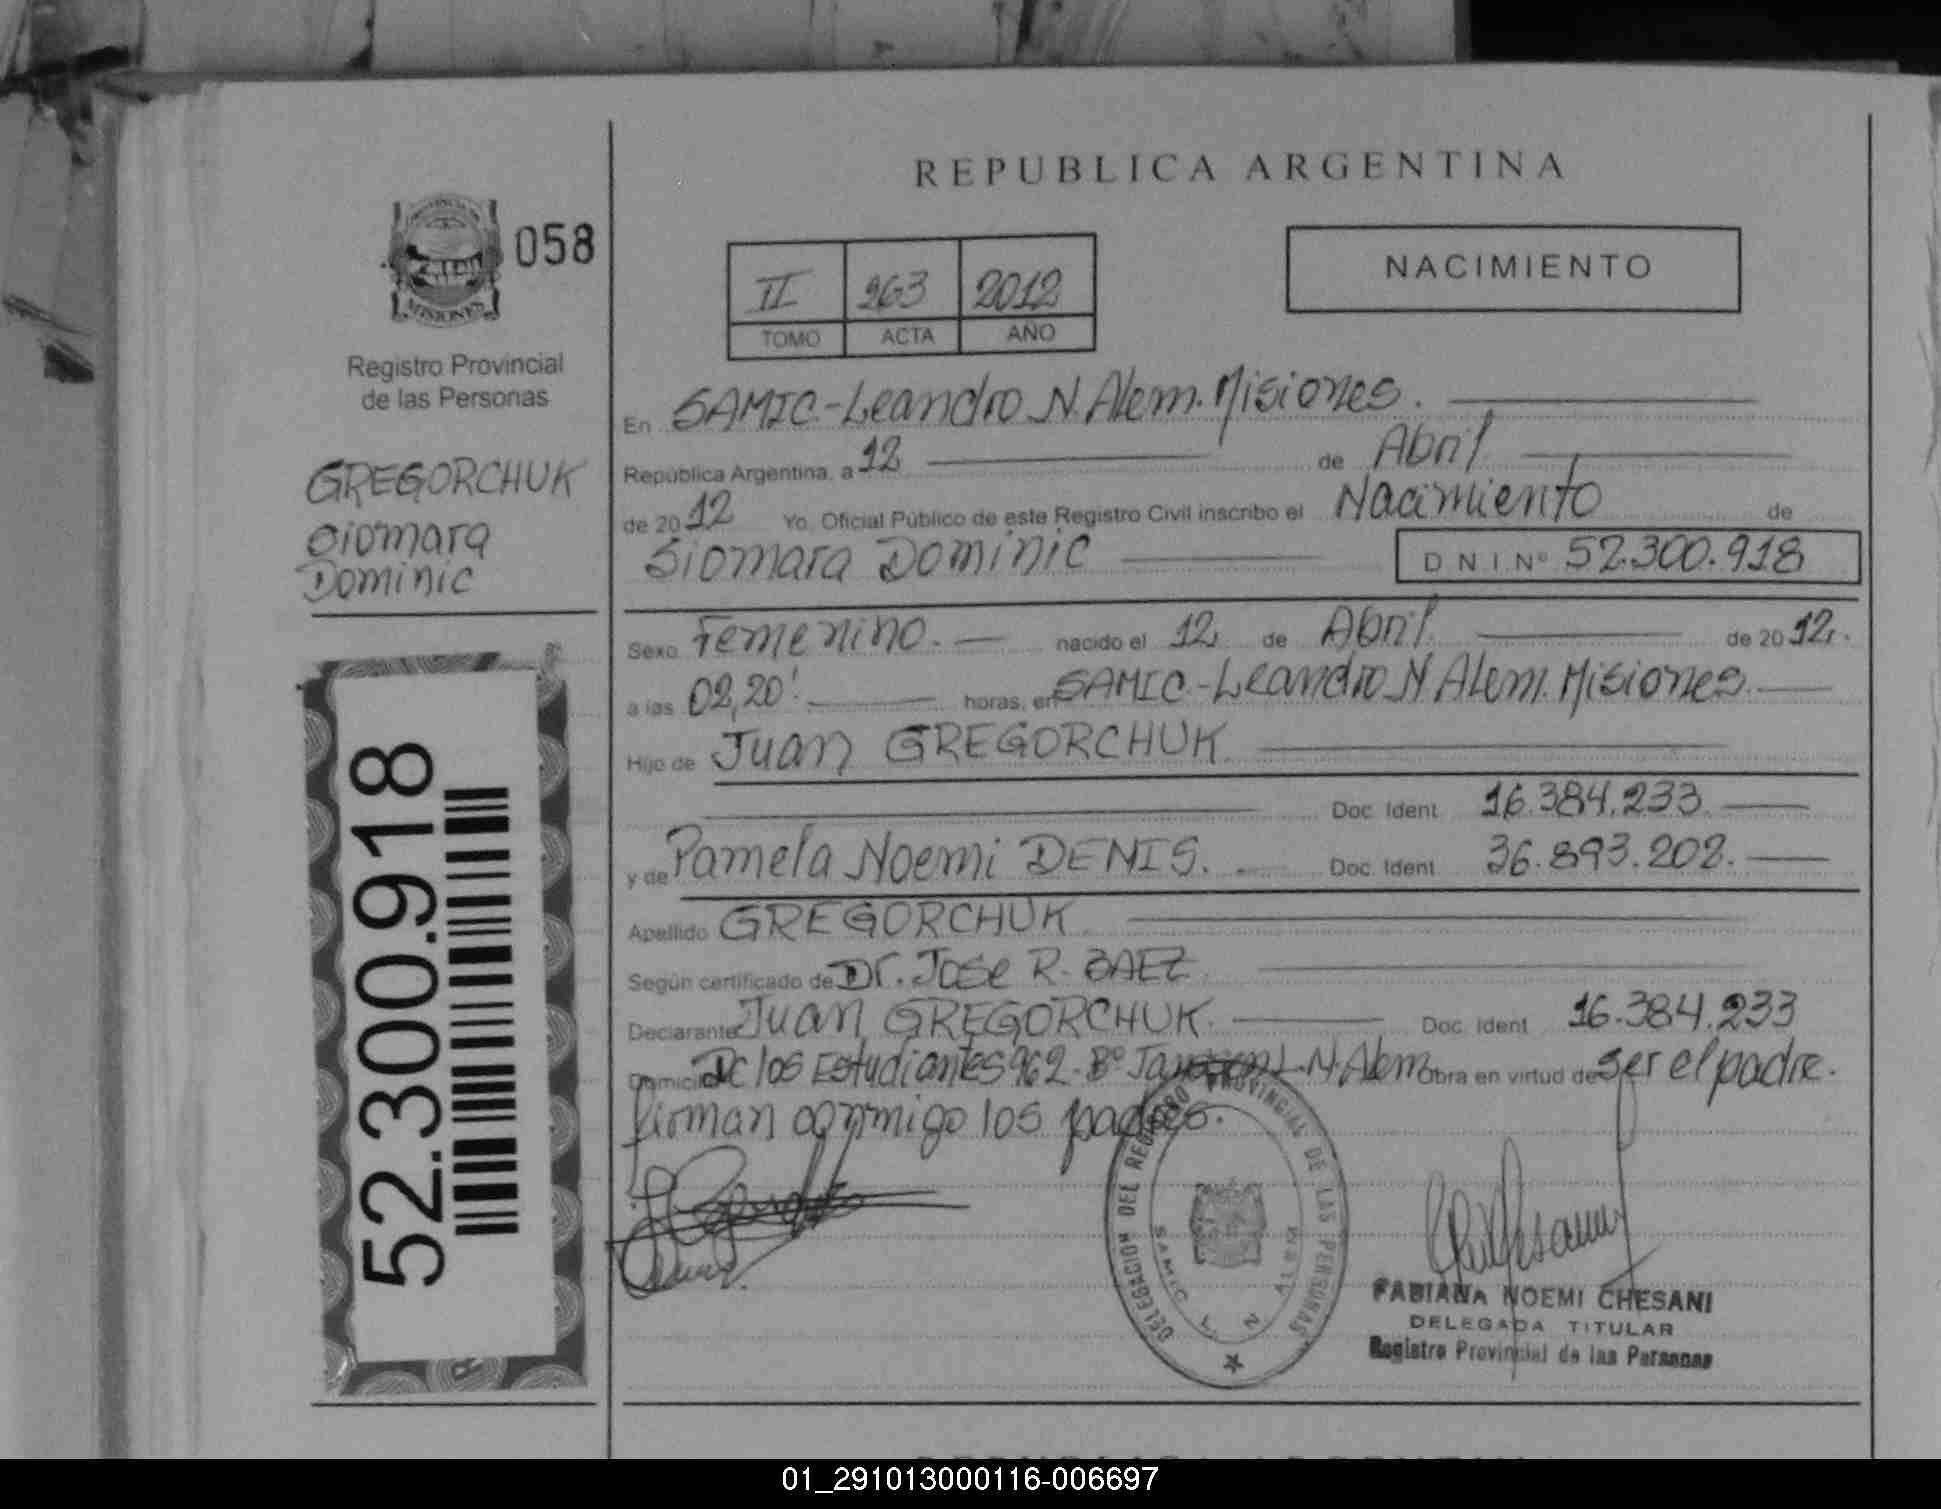 REPUBLICA ARGENTINA
058
NACIMIENTO
II 963 2012
TOMO ACTA AÑO
MISIONES
Registro Provincial
de las Personas
GREGORCHUK
Siomara
Dominic
En SAMIC-Leandro N. Alem. Misiones.
República Argentina, a 12 de Abril
de 2012 Yo, Oficial Público de este Registro Civil inscribo el Nacimiento de
Siomara Dominic DNI Nº 52.300.918
Sexo Femenino. nacido el 12 de Abril de 2012.
a las 02,20' horas, en SAMIC-Leandro N Alem. Misiones.
Hijo de Juan GREGORCHUK
Doc. Ident 16.384.233.
y de Pamela Noemi DENIS. Doc. Ident 36.893.202.
Apellido GREGORCHUK
Según certificado de Dr. Jose R. BAEZ
Declarante Juan GREGORCHUK. Doc. Ident 16.384.233
Domicilio De los Estudiantes 962. Bº L.N.Alem Obra en virtud de ser el padre.
firman conmigo los padres.
52.300.918
DELEGACION DEL REGISTRO PROVINCIAL DE LAS PERSONAS
SAMIC L N Alem
FABIANA NOEMI CHESANI
DELEGADA TITULAR
Registro Provincial de las Personas
01_291013000116-006697